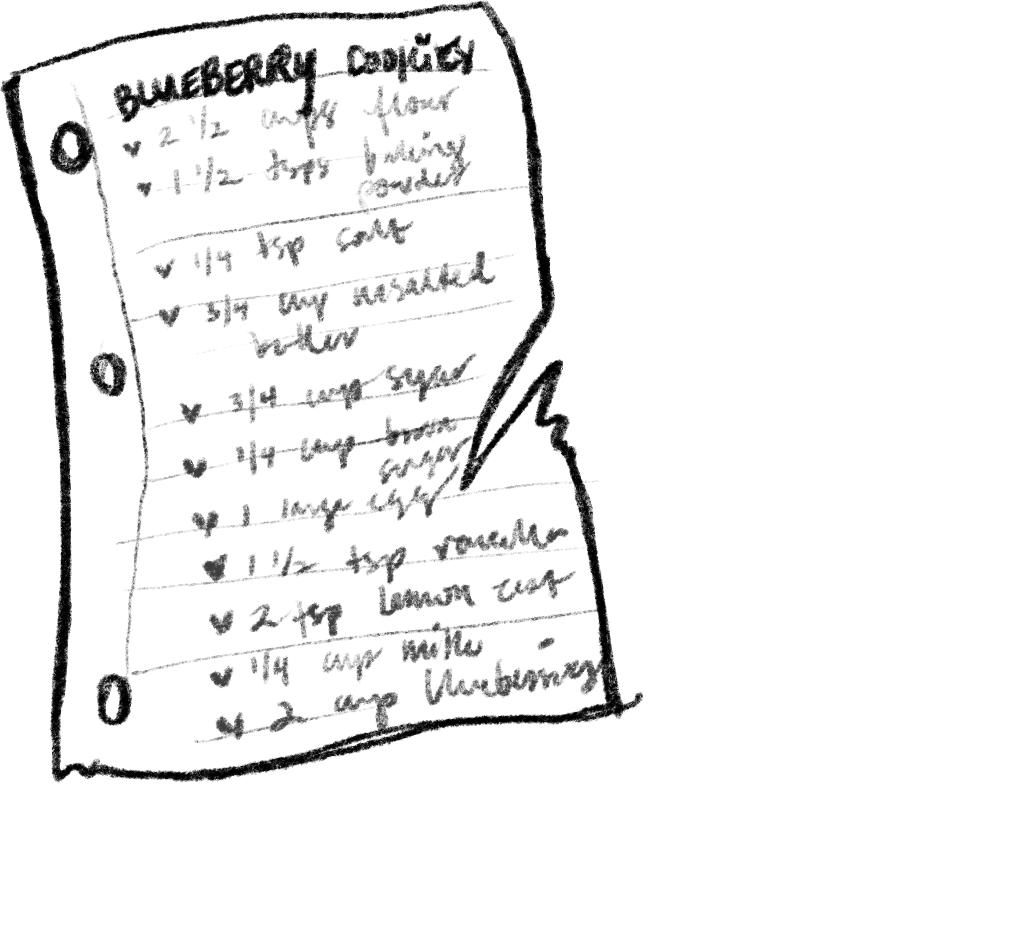 BLUEBERRY COOKIES
♥ 2 1/2 cups flour
♥ 1 1/2 tsps baking
powder
♥ 1/4 tsp salt
♥ 3/4 cup unsalted
butter
♥ 3/4 cup sugar
♥ 1/4 cup brown
sugar
♥ 1 large egg
♥ 1 1/2 tsp vanilla
♥ 2 tsp lemon zest
♥ 1/4 cup milk
♥ 2 cup blueberries